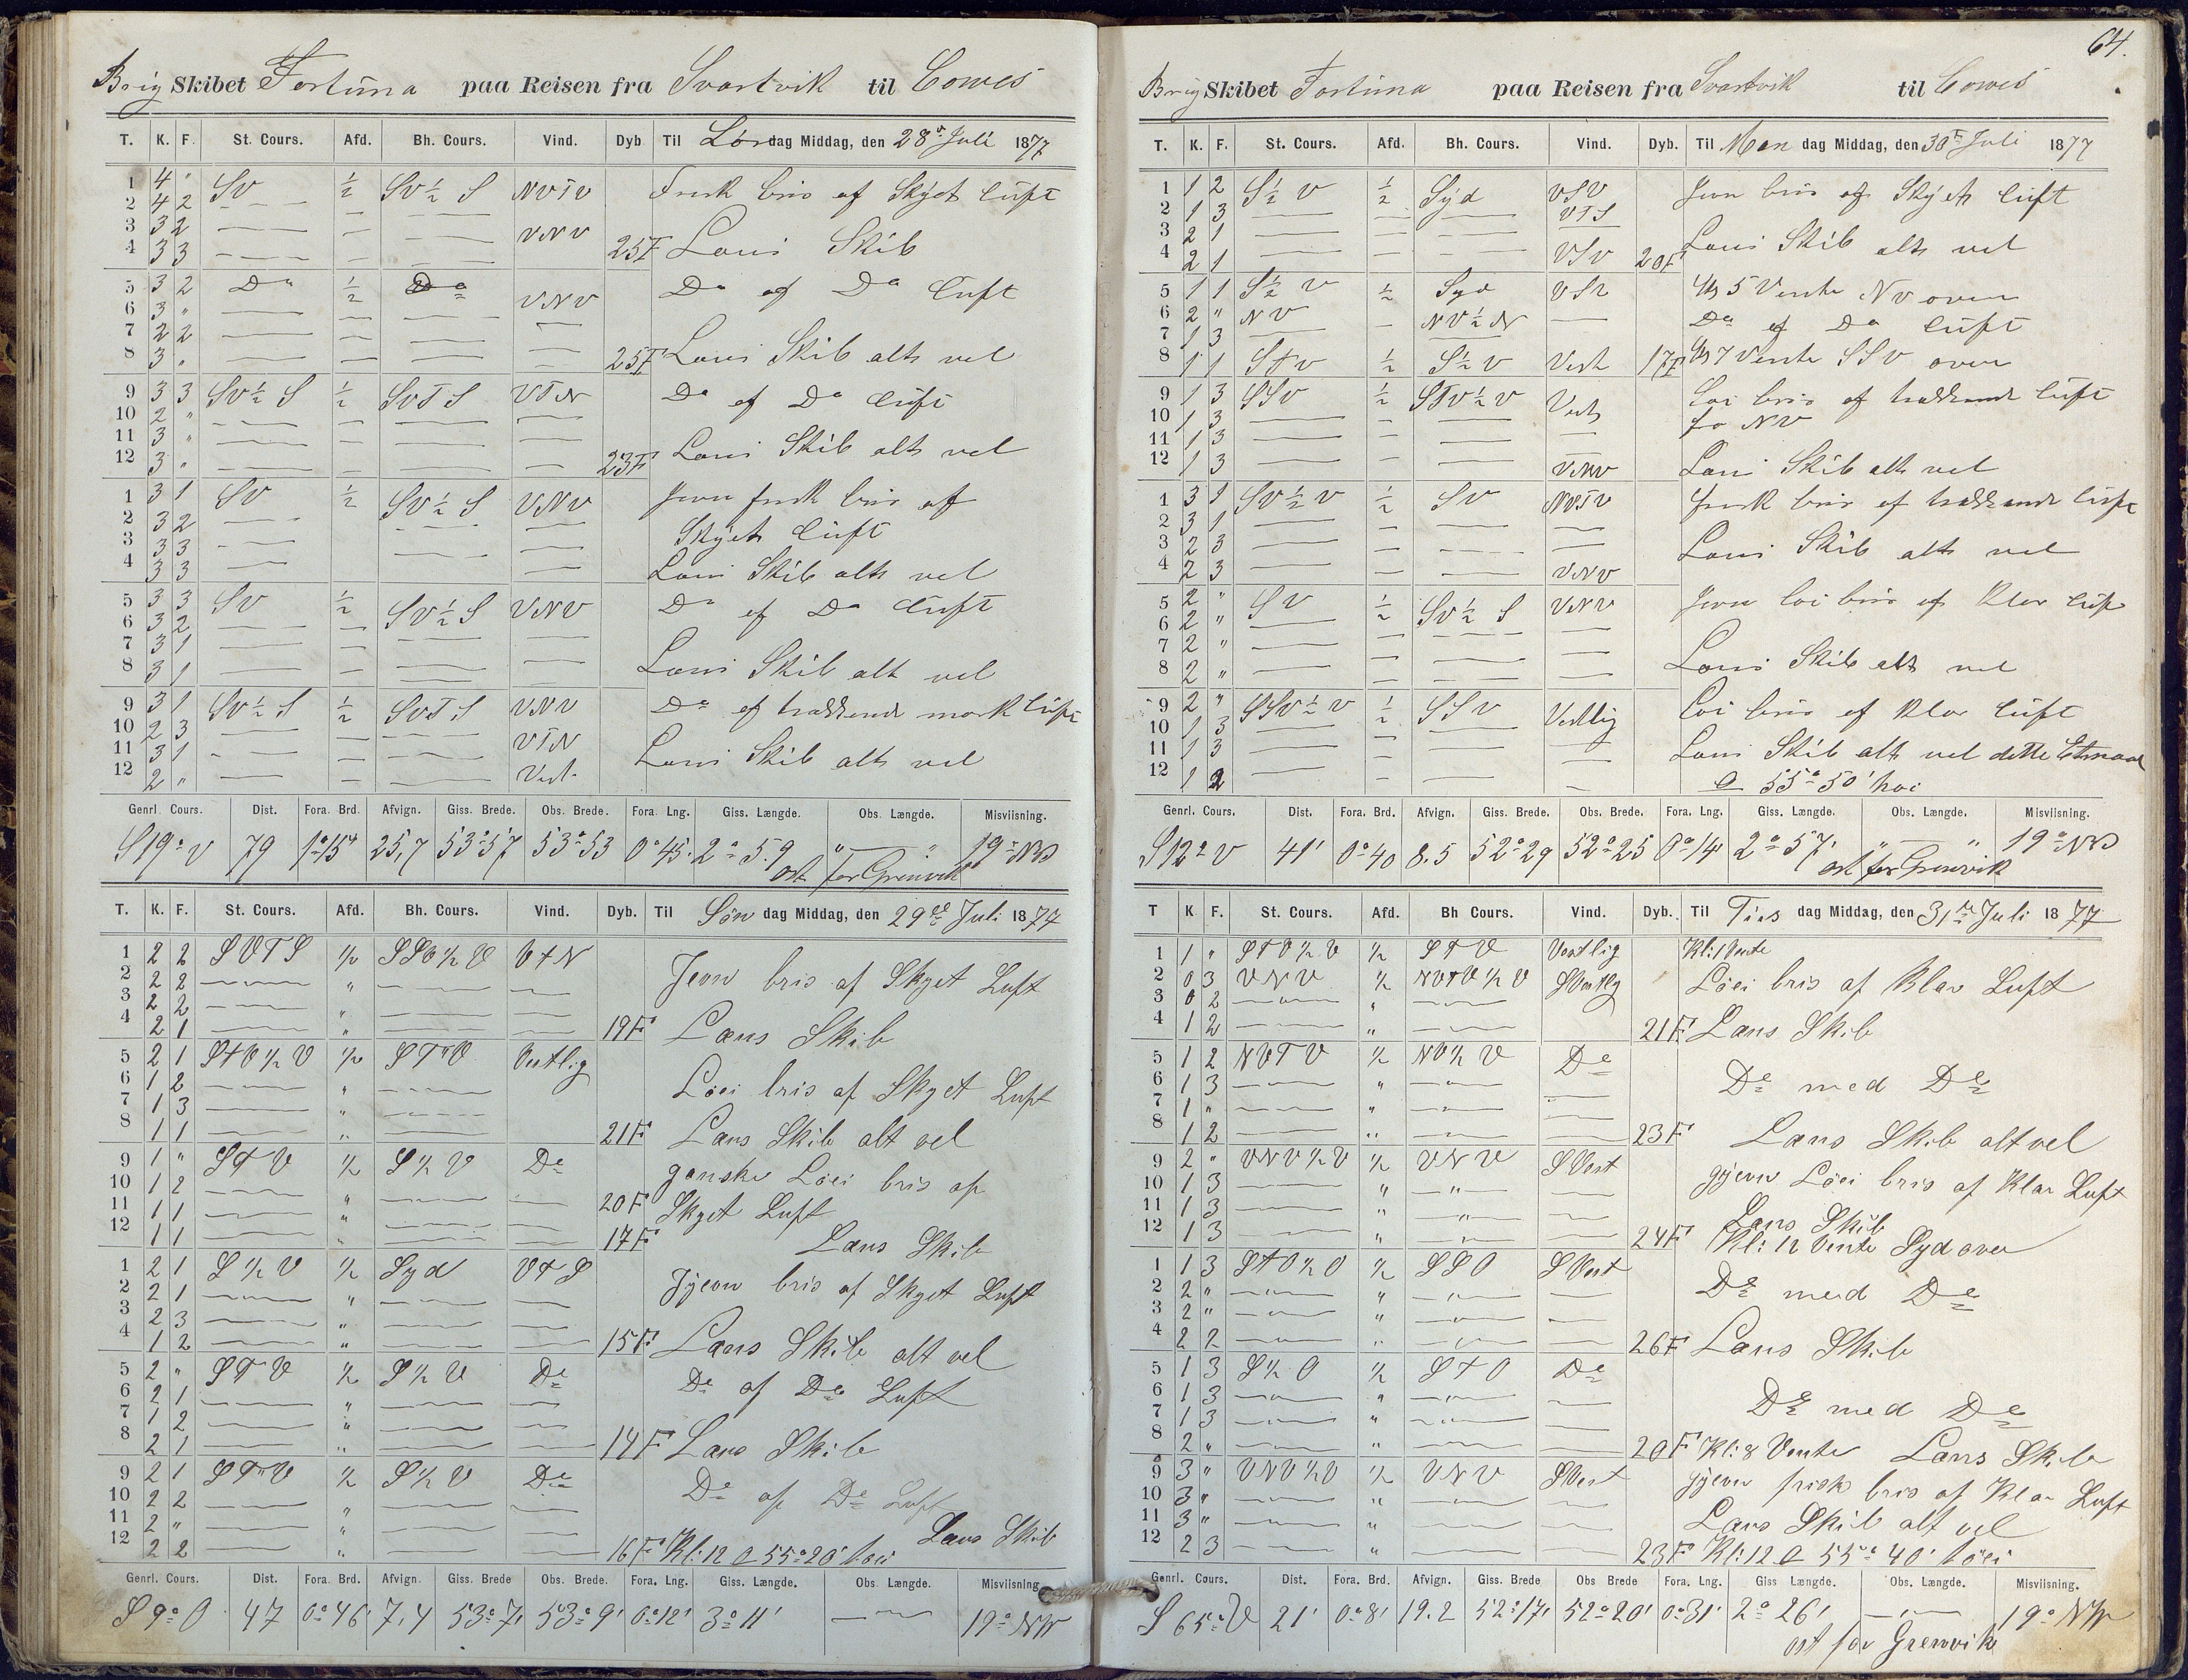 Brig Skibet Fortuna paa Reisen fra Svartvik til Cowes
T. K. F. St. Cours. Afd. Bh. Cours. Vind. Dyb Til Lørdag Middag, den 28de Juli 1877
1 4 " SV ½ SV½S NVTV Frisk bris af Skyet Luft
2 4 2
3 3 2 VNV
4 3 3 25F Læns Skib
5 3 2 Do ½ Do Do af Do Luft
6 3 " VNV
7 2 2
8 3 " 25F Læns Skib alt vel
9 3 3 SV½S ½ SVTS VTN Do af Do Luft
10 2 "
11 3 "
12 3 " 23F Læns Skib alt vel
1 3 1 SV ½ SV½S VNV Jevn frisk bris af
2 3 2 Skyet Luft
3 3 3
4 3 3 Læns Skib alt vel
5 3 3 SV ½ SV½S VNV Do af Do Luft
6 3 2
7 3 1
8 3 1 Læns Skib alt vel
9 3 1 SV½S ½ SVTS VNV Do af trækkende mørk Luft
10 2 3 VTN
11 3 1 Læns Skib alt vel
12 2 " Vest
Genrl. Cours. Dist. Fora. Brd. Afvign. Giss. Brede. Obs. Brede. Fora. Lng. Giss. Længde. Obs. Længde. Misviisning.
S19°V 79 1°15' 25,7 53°57 53°53 0°45' 2°59 " " 19°NV
ost for Grenvik
T. K. F. St. Cours. Afd. Bh. Cours. Vind. Dyb. Til Søndag Middag, den 29de Juli 1877
1 2 2 SVTS ½ SSV½V VTN Jevn bris af Skyet Luft
2 2 2 "
3 2 2 "
4 2 1 " 19F Læns Skib
5 2 1 STV½V ½ STV Vestlig
6 1 2 " Løei bris af Skyet Luft
7 1 3 "
8 1 1 " 21F Læns Skib alt vel
9 1 " STV ½ S½V Do ganske Løei bris af
10 1 2 " 20F Skyet Luft
11 1 1 "
12 1 1 " 17F Læns Skib
1 2 1 S½V ½ Syd VTS Jyevn bris af Skyet Luft
2 2 1 "
3 2 3 "
4 1 2 " 15F Læns Skib alt vel
5 2 " STV ½ S½V Do Do af Do Luft
6 2 1 "
7 1 2 "
8 2 1 " 14F Læns Skib
9 2 1 STV ½ S½V Do Do af Do Luft
10 2 2 "
11 2 " " Læns Skib
12 2 2 " 16F Kl: 12 55°20' høi
Genrl. Cours. Dist. Fora. Brd. Afvign. Giss. Brede Obs. Brede. Fora. Lng. Giss. Længde. Obs. Længde. Misviisning.
S 9° O 47 0°46' 7,4 53°7' 53°9' 0°12' 3°11' 19°NW
64.
Brig Skibet Fortuna paa Reisen fra Svartvik til Cowes
T. K. F. St. Cours. Afd. Bh. Cours. Vind. Dyb. Til Mandag Middag, den 30te Juli 1877
1 1 2 S½V ½ Syd VSV Jevn bris af Skyet Luft
2 1 3 VTS
3 2 1 Læns Skib alt vel
4 2 1 VSV 20F
5 1 1 S½V ½ Syd VSV Kl 5 Vente NV over
6 2 " NV NV½N Do af Do Luft
7 1 3
8 1 1 STV ½ S½V Vest 17F Kl 7 Vente SSV over
9 1 3 SSV ½ STV½V Vest Løi bris af trækkende Luft
10 1 3 fra NV
11 1 3
12 1 3 VNV Læns Skib alt vel
1 3 1 SV½V ½ SV NVTV frisk bris af trækkende Luft
2 3 1
3 2 3 Læns Skib alt vel
4 2 3 VNV
5 2 " SV ½ SV½S VNV Jevn løi bris af Klar Luft
6 2 "
7 2 "
8 2 " Læns Skib alt vel
9 2 " SSV½V ½ SSV Vestlig Løi bris af Klar Luft
10 1 3
11 1 3 Læns Skib alt vel dette Etmaal
12 1 2 55°50' høi
Genrl. Cours. Dist. Fora. Brd. Afvign. Giss. Brede. Obs. Brede. Fora. Lng. Giss. Længde. Obs. Længde. Misviisning.
S12°V 41' 0°40 8.5 52°29 52°25 0°14' 2°57' " " 19°NV
ost for Grenvik
T K F. St. Cours. Afd. Bh Cours. Vind. Dyb. Til Tirsdag Middag, den 31te Juli 1877
1 1 " STV½V ½ STV Vestlig Kl: 1 Vente
2 0 3 VNV ½ NVTV½V SVestlig Løei bris af Klar Luft
3 0 2 "
4 1 2 " 21F Læns Skib
5 1 2 NVTV ½ NV½V Do Do med Do
6 1 3 "
7 1 " "
8 1 2 " 23F Læns Skib alt vel
9 2 " VNV½V ½ VNV SVest gjevn Løei bris af Klar Luft
10 1 3 "
11 1 3 " Læns Skib
12 1 3 " 24F Kl: 12 Vente Syd over
1 1 3 STO½O ½ SSO SVest Do med Do
2 2 " "
3 2 " "
4 2 2 " 26F Læns Skib
5 1 3 S½O ½ STO Do
6 1 3 " Do med Do
7 1 3 "
8 2 " " 20F Kl: 8 Vente Læns Skib
9 3 " VNV½V ½ VNV SVest gjevn frisk bris af Klar Luft
10 3 " "
11 3 " " Læns Skib alt vel
12 2 3 " 23F Kl: 12 55°40' høi
Genrl. Cours. Dist. Fora. Brd. Afvign. Giss. Brede Obs Brede Fora. Lng. Giss Længde. Obs. Længde. Misviisning.
S 65°V 21' 0°8' 19.2 52°17' 52°20' 0°31' 2°26' 19°NW
ost for Grenvik